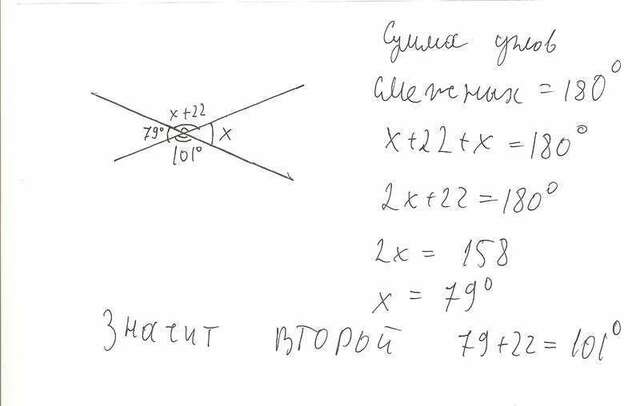 Сумма углов
смежных = 180°
x+22
79°
x
101°
x+22+x = 180°
2x+22 = 180°
2x = 158
x = 79°
Значит второй 79+22 = 101°